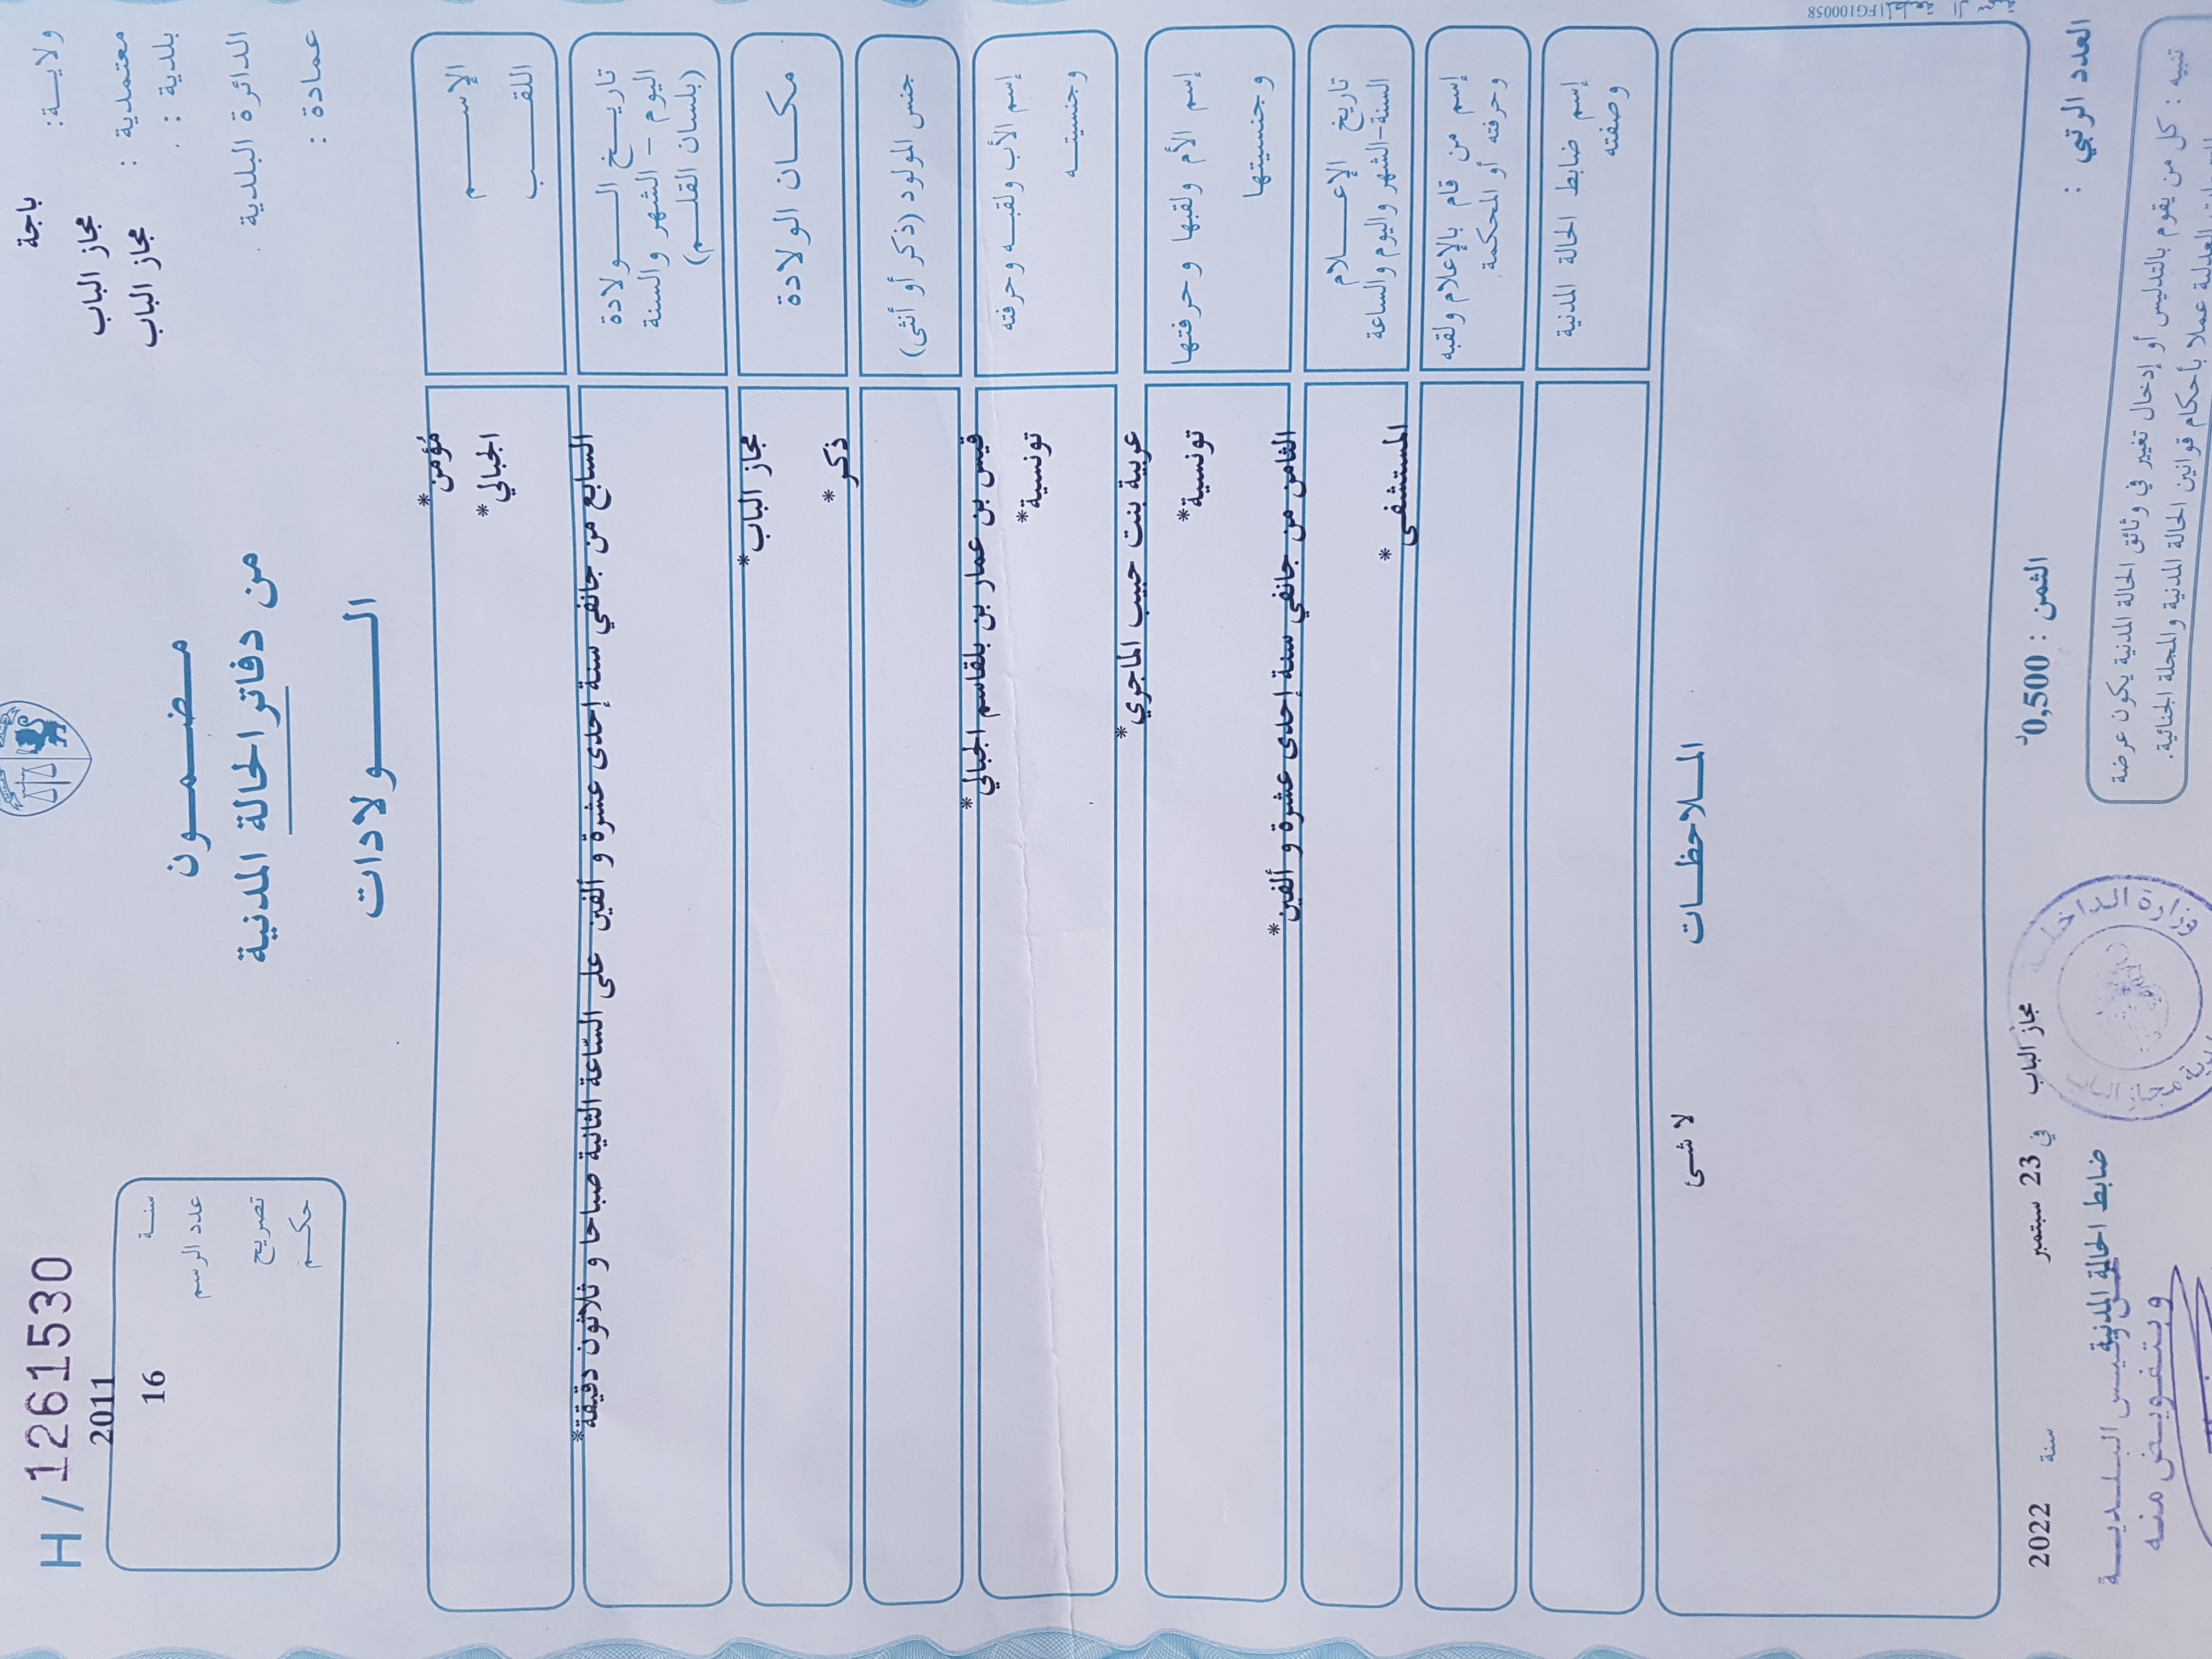 H / 1261530
ولايـــة: باجة
معتمدية : مجاز الباب
بلدية : مجاز الباب
الدائرة البلدية
عمادة :
مــضــمــــون
من دفاتر الحالة المدنية
الـــــــولادات
سنـــة 2011
عدد الرسم 16
تصريح
حكــم
الإســــــم مؤمن*
اللقــــب الجبالي*
تاريـــخ الـــــولادة
اليوم – الشهر والسنة
(بلسان القلـــم)
السابع من جانفي سنة إحدى عشرة و ألفين على الساعة الثانية صباحا و ثلاثون دقيقة*
مكـــان الولادة مجاز الباب*
جنس المولود (ذكر أو أنثى) ذكر*
إسم الأب ولقبــه وحرفته قيس بن عمار بن بلقاسم الجبالي*
وجنسيتــــه تونسية*
إسم الأم ولقبها وحرفتـها عربية بنت حبيب الماجري*
وجنسيتـها تونسية*
تاريخ الإعـــــلام
السنة-الشهر واليوم والساعة
الثامن من جانفي سنة إحدى عشرة و ألفين*
إسم من قام بالإعلام ولقبه
وحرفته أو المحكمة
المستشفى*
إسم ضابط الحالة المدنية
وصفته
المــلاحظـــات
لا شئ
مجاز الباب في 23 سبتمبر سنة 2022
العدد الرتبي :
الثمن : 0,500د
ضابط الحالة المدنية
وبتـفويـــض منـه
وزارة الداخلية
تنبيه : كل من يقوم بالتدليس أو إدخال تغيير في وثائق الحالة المدنية يكون عرضة
العدلية عملا بأحكام قوانين الحالة المدنية والمجلة الجنائية.
FG100058